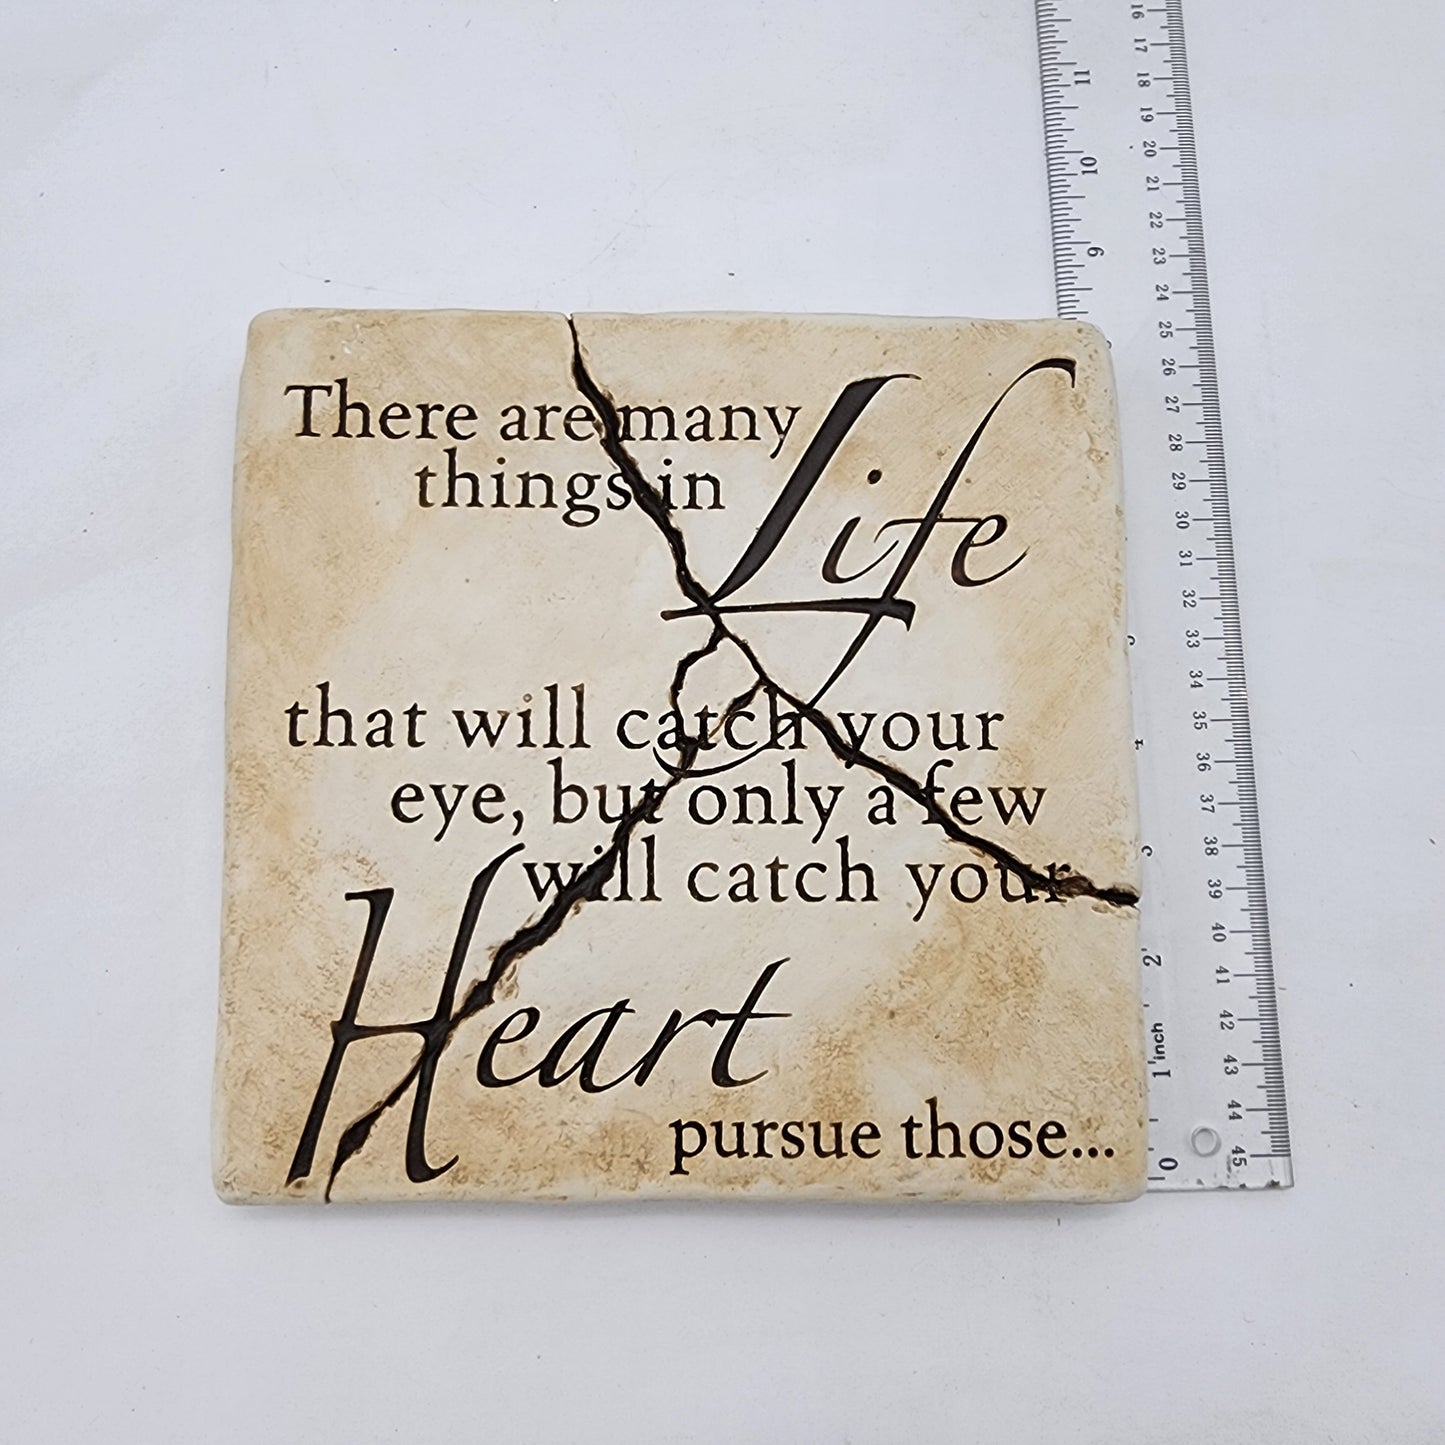 There are many
things in Life
that will catch your
eye, but only a few
will catch your
Heart
pursue those...
11
10
9
2
1 inch
0
16
17
18
19
20
21
22
23
24
25
26
27
28
29
30
31
32
33
34
35
36
37
38
39
40
41
42
43
44
45